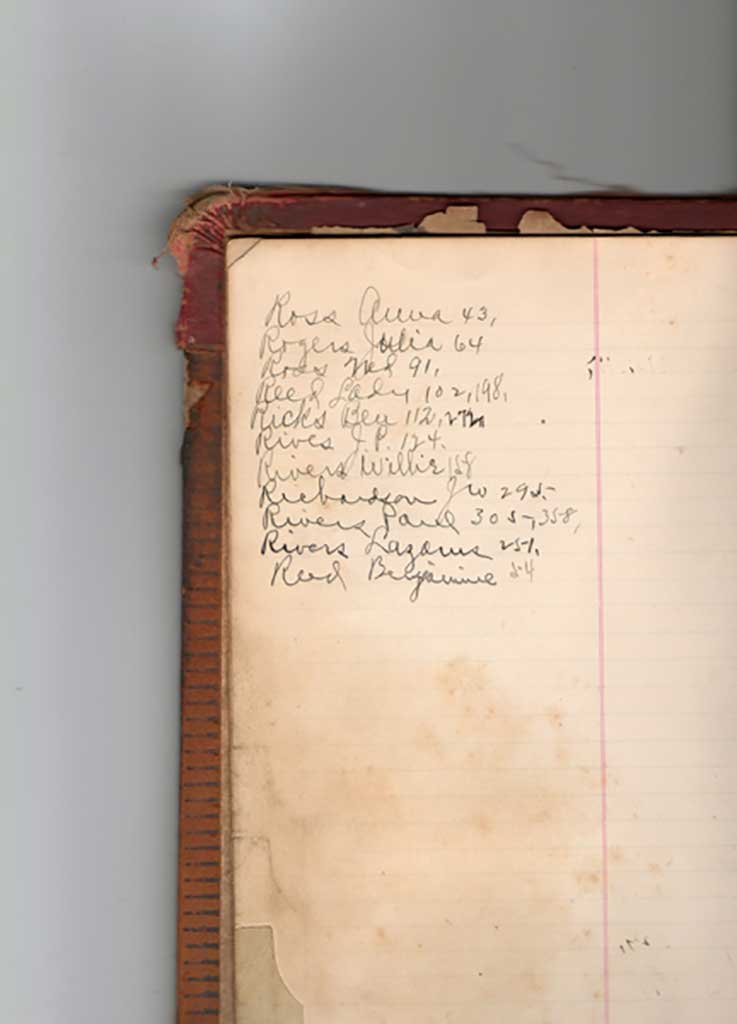 Ross Anna 43,
Rogers Julia 64
Ross Ned 91,
Reed Lady 102, 198,
Ricks Ben 112,
Rives J. P. 124.
Rivers Willie 158
Richardson J W 295
Rivers Paul 305, 358,
Rivers Lazarus 251,
Reed Benjamine 54